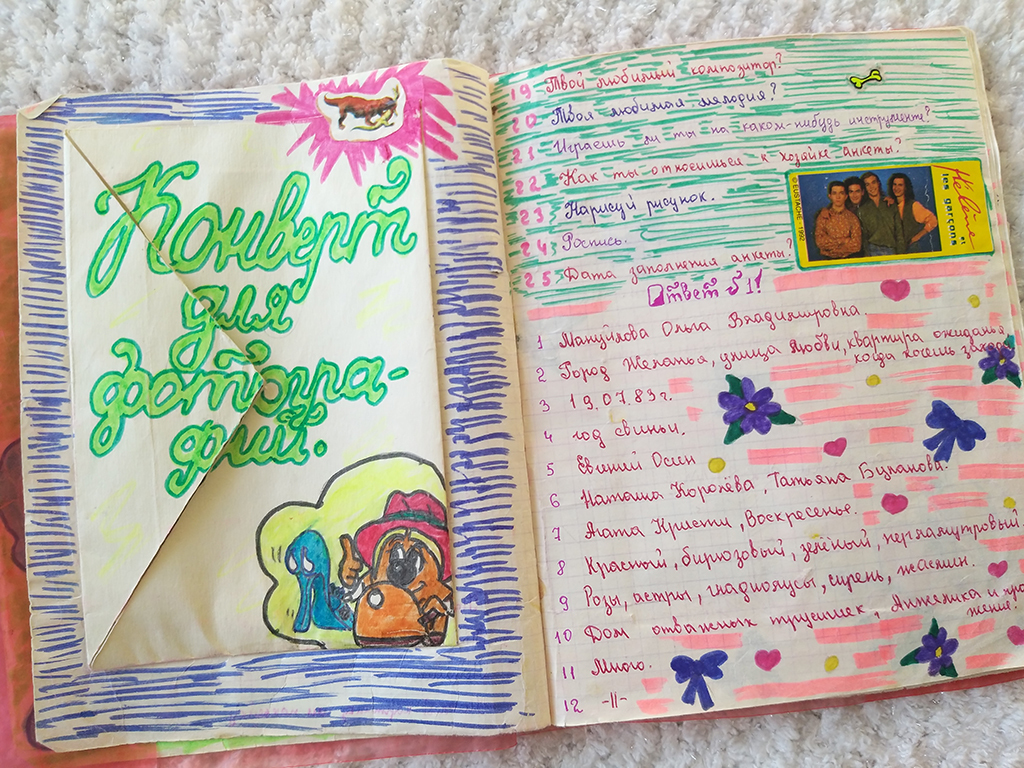 Конверт
для
фотогра-
фий.
19 Твой любимый композитор?
20 Твоя любимая мелодия?
21 Играешь ли ты на каком-нибудь инструменте?
22 Как ты относишься к хозяйке анкеты?
23 Нарисуй рисунок.
24 Роспись.
25 Дата заполнения анкеты?
Hélène
et
les garçons
© EUSTACHE 1992
Ответ №1!
1 Мануйлова Ольга Владимировна.
2 Город Желанья, улица Любви, квартира ожиданья
когда хочешь заходи
3 19.07.83г.
4 год свиньи.
5 Евгений Осин
6 Наташа Королёва, Татьяна Буланова.
7 Агата Кристи, Воскресенье.
8 Красный, бирюзовый, зелёный, перламутровый
9 Розы, астры, гладиолусы, сирень, жасмин.
10 Дом отважных трусишек, Анжелика и
11 Много.
12 -||-